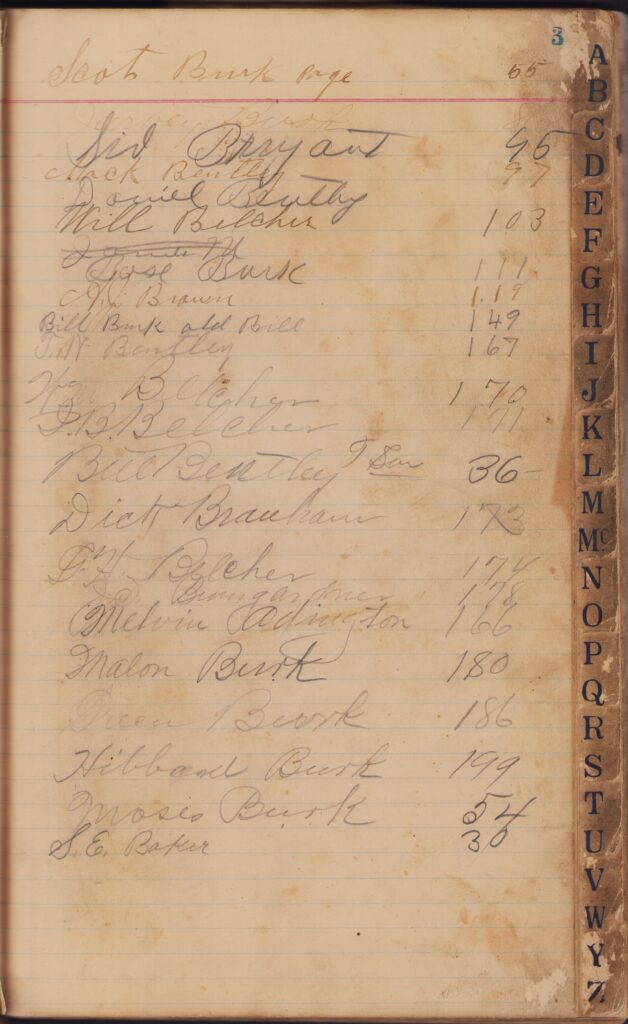 3
Scot Burk page 55
Burk
Sid Bryant 95
Mack Bentley 97
Daniel Bentley
Will Belcher 103
James M
Jose Burk 111
Brown 1.19
Bill Burk old Bill 149
T. N Bentley 167
Belcher 170
J. B. Belcher 171
Bill Bentley & Son 36
Dick Branham 173
Belcher 174
Bumgardner 178
Melvin Adington 166
Malon Burk 180
Green Burk 186
Hibbard Burk 199
Moses Burk 54
S. E. Baker 30
A
B
C
D
E
F
G
H
I
J
K
L
M
Mc
N
O
P
Q
R
S
T
U
V
W
Y
Z